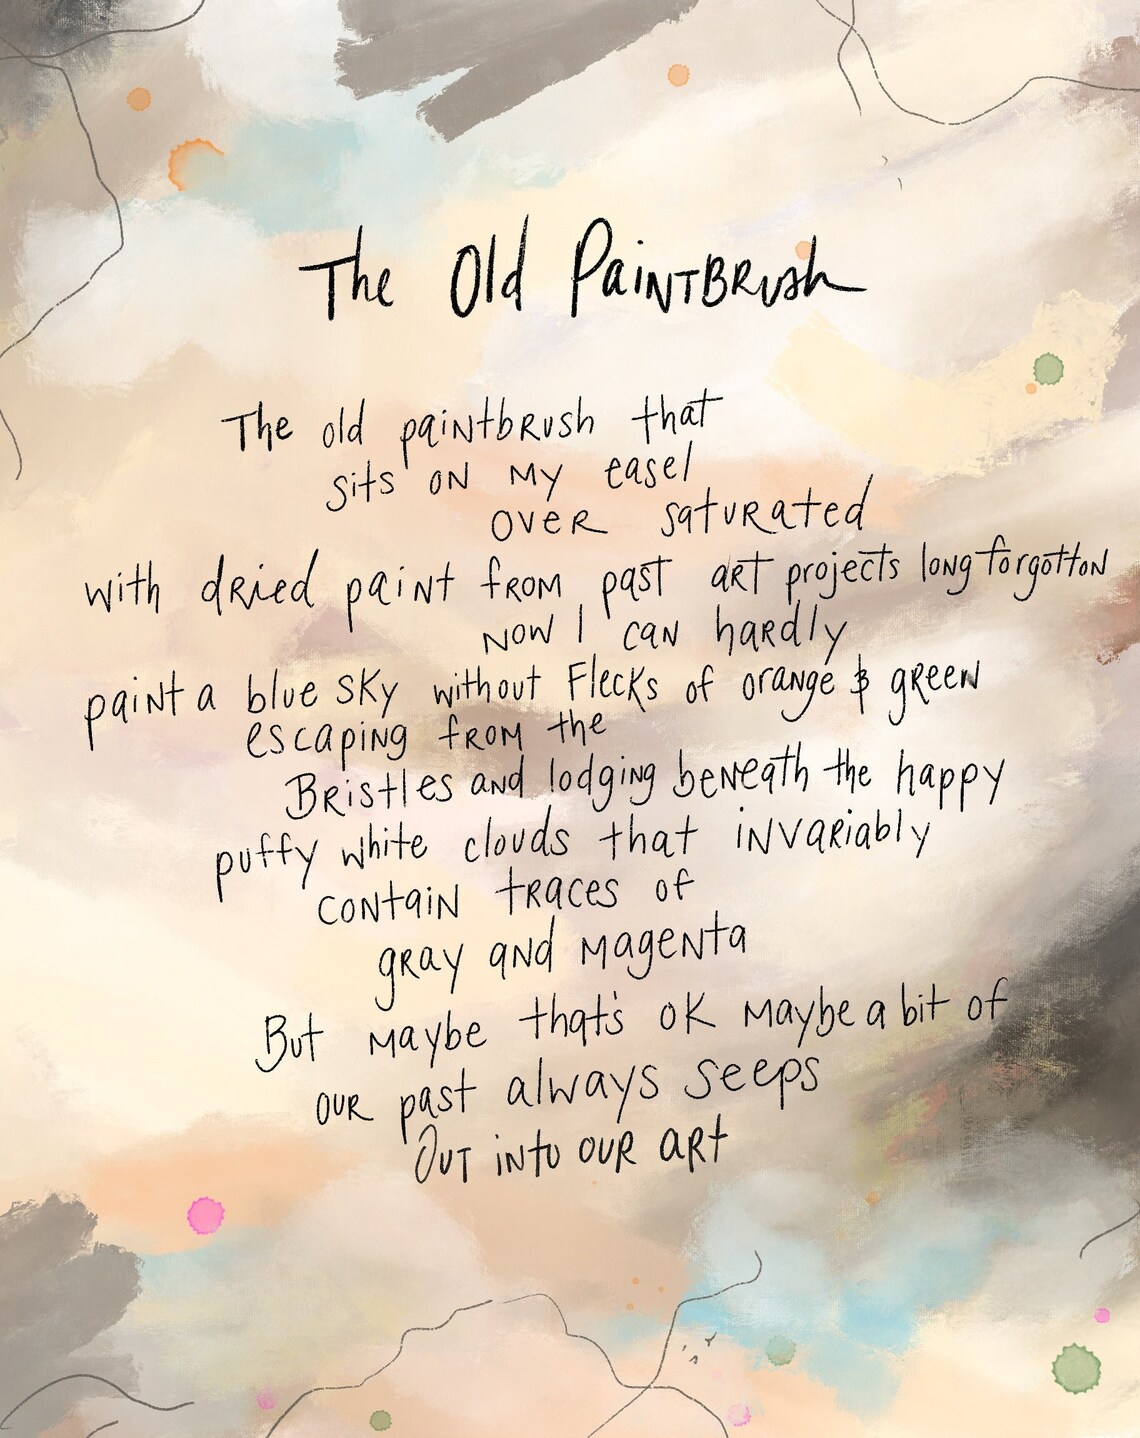 The Old Paintbrush
The old paintbrush that
sits on my easel
over saturated
with dried paint from past art projects long forgotton
now I can hardly
paint a blue sky without Flecks of orange & green
escaping from the
Bristles and lodging beneath the happy
puffy white clouds that invariably
contain traces of
gray and magenta
But maybe that's ok maybe a bit of
our past always seeps
Out into our art